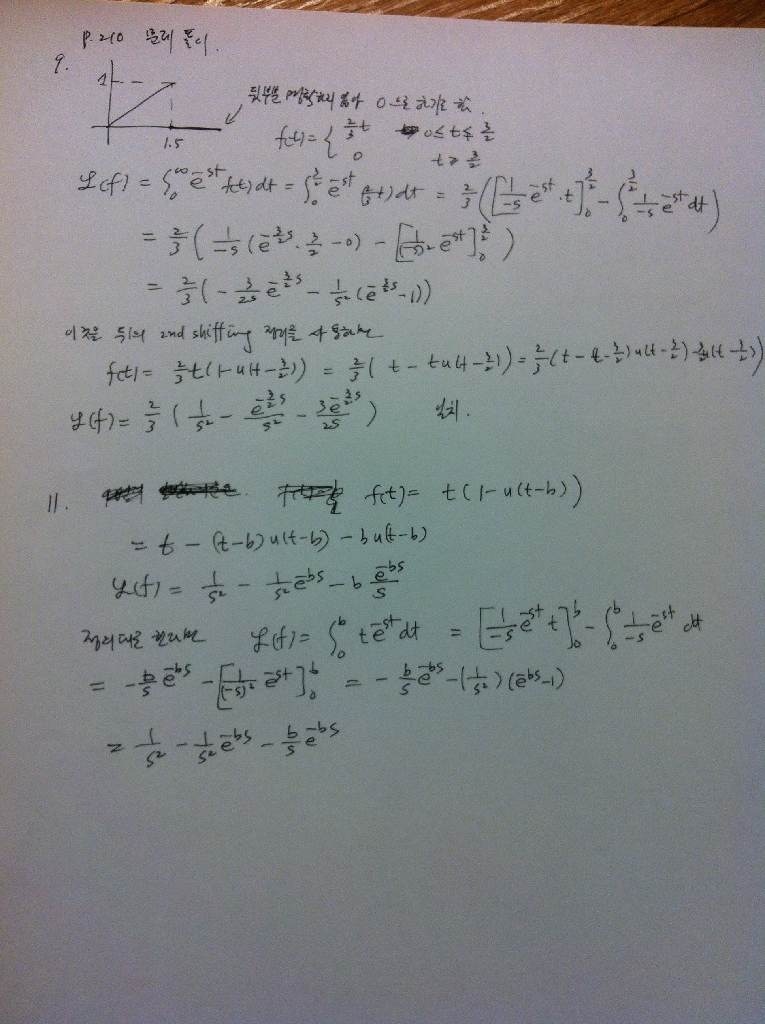 P. 210 문제 풀이.
9.
1
1.5
뒷부분 명확하지 않아 0으로 하기로 함.
f(t) = { 2/3 t 0 ≤ t ≤ 3/2
0 t ≥ 3/2
ℒ(f) = ∫₀^∞ e^{-st} f(t) dt = ∫₀^{3/2} e^{-st} (2/3 t) dt = 2/3 ([1/-s e^{-st} · t]₀^{3/2} - ∫₀^{3/2} 1/-s e^{-st} dt)
= 2/3 ( 1/-s (e^{-3/2 s} · 3/2 - 0) - [1/(-s)² e^{-st}]₀^{3/2} )
= 2/3 ( - 3/2s e^{-3/2 s} - 1/s² (e^{-3/2 s} - 1))
이것을 뒤의 2nd shifting 정리를 사용하면
f(t) = 2/3 t (1 - u(t - 3/2)) = 2/3 ( t - t u(t - 3/2)) = 2/3 (t - (t - 3/2) u(t - 3/2) - 3/2 u(t - 3/2))
ℒ(f) = 2/3 ( 1/s² - e^{-3/2 s}/s² - 3e^{-3/2 s}/2s ) 일치.
11. f(t) = t (1 - u(t-b))
= t - (t-b) u(t-b) - b u(t-b)
ℒ(f) = 1/s² - 1/s² e^{-bs} - b e^{-bs}/s
정의대로 한다면 ℒ(f) = ∫₀^b t e^{-st} dt = [1/-s e^{-st} t]₀^b - ∫₀^b 1/-s e^{-st} dt
= - b/s e^{-bs} - [1/(-s)² e^{-st}]₀^b = - b/s e^{-bs} - (1/s²) (e^{-bs} - 1)
= 1/s² - 1/s² e^{-bs} - b/s e^{-bs}